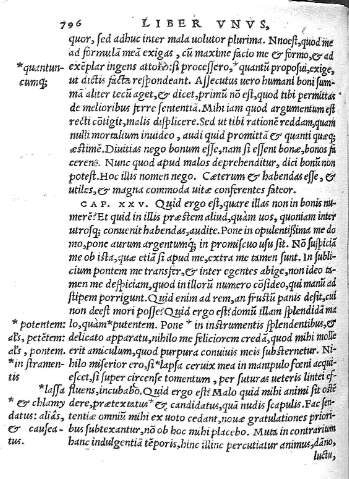 796 LIBER VNVS,
quor, sed adhuc inter mala uolutor plurima. Nnoest, quod me
ad formulā meā exigas, cū maxime facio me & formo, & ad
*quantun- exēplar ingens attollo: si processero, *quantū proposui, exige,
cumq; ut dictis facta respondeant. Assecutus uero humani boni sum-
mā aliter tecū aget, & dicet, primū nō est, quod tibi permittas
de melioribus ferre sententiā. Mihi iam quod argumentum est
recti cōtigit, malis displicere. Sed ut tibi rationē reddam, quam
nulli mortalium inuideo, audi quid promittā & quanti quæq;
æstimē. Diuitias nego bonum esse, nam si essent bonæ, bonos fa
cerent. Nunc quod apud malos deprehenditur, dici bonū non
potest. Hoc illis nomen nego. Cæterum & habendas esse, &
utiles, & magna commoda uitæ conferentes fateor.
CAP. XXV. Quid ergo est, quare illas non in bonis nu-
merē? Et quid in illis præstem aliud, quàm uos, quoniam inter
utrosq; conuenit habendas, audite. Pone in opulentissima me do
mo, pone aurum argentumq; in promiscuo usu sit. Nō suspiciā
me ob ista, quæ etiā si apud me, extra me tamen sunt. In subli-
cium pontem me transfer, & inter egentes abige, non ideo ta-
men me despiciam, quod in illorū numero cōsideo, qui manū ad
stipem porrigunt. Quid enim ad rem, an frustū panis desit, cui
non deest mori posse? Quid ergo est? domū illam splendidā ma
* potentem: lo, quàm *putentem. Pone * in instrumentis splendentibus, &
als, petētem: delicato apparatu, nihilo me feliciorem credā, quod mihi molle
als, pontem. erit amiculum, quod purpura conuiuis meis substernetur. Ni-
* in stramen- hilo miserior ero, si *lapsa ceruix mea in manipulo fœni acqui
tis escet, si super circense tomentum, per suturas ueteris lintei ef-
*lassa fluens, incubabo. Quid ergo est? Malo quid mihi animi sit oste
* & chlamy dere, prætextatus * & candidatus, quā nudis scapulis. Fac sen-
datus: aliàs, tentiæ omniū mihi ex uoto cedant, nouæ gratulationes priori-
& causea- bus subtexantur, nō ob hoc mihi placebo. Muta in contrarium
tus. hanc indulgentiā tēporis, hinc illinc percutiatur animus, dāno,
luctu,